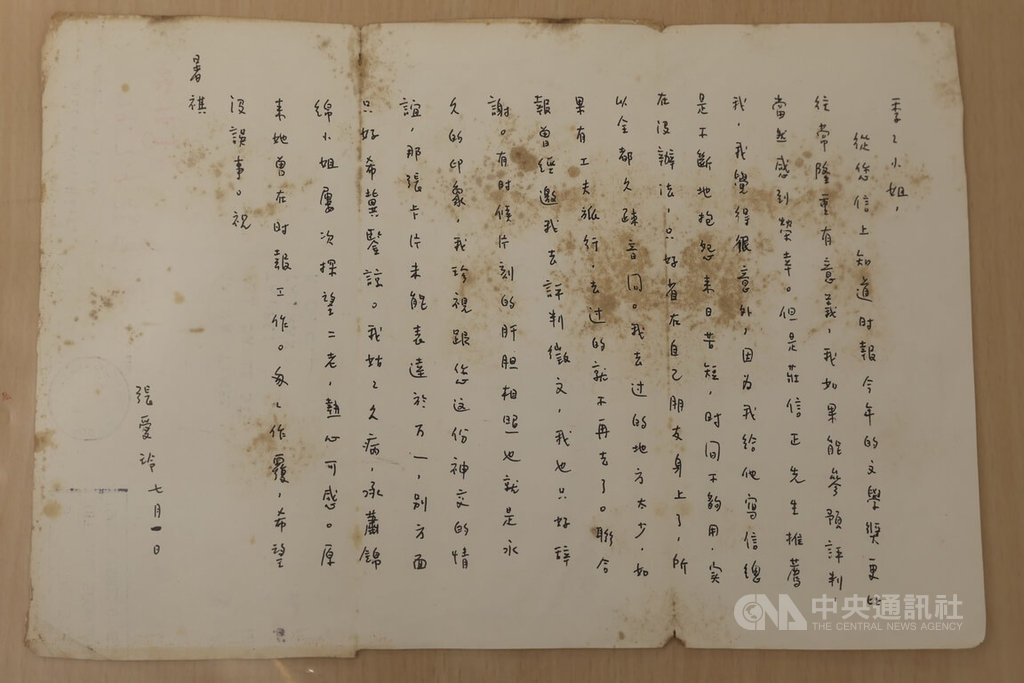 季季小姐，
從您信上知道时報今年的文學獎更比
往常隆重有意義，我如果能參預評判，
當然感到榮幸。但是莊信正先生推薦
我，我覺得很意外，因为我給他寫信總
是不斷地抱怨来日苦短，时间不夠用，实
在没辦法，只好省在自己朋友身上了，所
以全都久疎音问。我去过的地方太少，如
果有工夫旅行，去过的就不再去了。聯合
報曾經邀我去評判徵文，我也只好辞
謝。有时候片刻的肝胆相照也就是永
久的印象，我珍視跟您这份神交的情
誼，那張卡片未能表達於万一，别方面
只好希冀鑒諒。我姑姑久病，承蕭錦
綿小姐屢次探望二老，熱心可感。原
来她曾在时報工作。匆匆作覆，希望
没誤事。祝
暑祺
張愛玲 七月一日
中央通訊社
THE CENTRAL NEWS AGENCY